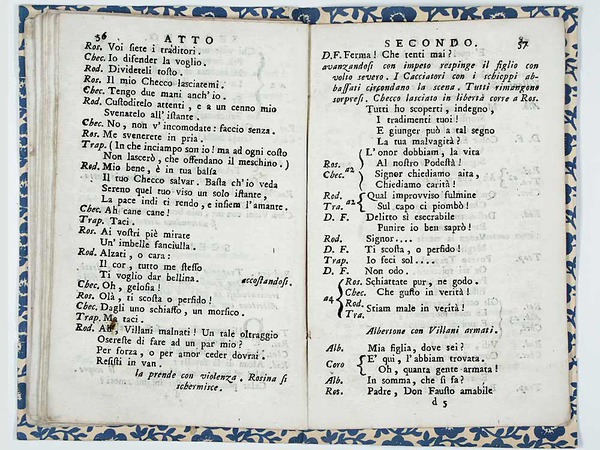 56 ATTO
Ros. Voi siete i traditori.
Chec. Io difender la voglio.
Rod. Divideteli tosto.
Ros. Il mio Checco lasciatemi.
Chec. Tengo due mani anch'io.
Rod. Custoditelo attenti, e a un cenno mio
Svenatelo all'istante.
Chec. No, non v'incomodate: faccio senza.
Ros. Me svenerete in pria.
Trap. (In che inciampo son io! ma ad ogni costo
Non lascerò, che offendano il meschino.)
Rod. Mio bene, è in tua balìa
Il tuo Checco salvar. Basta ch'io veda
Sereno quel tuo viso un solo istante,
La pace indi ti rendo, e insiem l'amante.
Chec. Ah cane cane!
Trap. Taci.
Ros. Ai vostri piè mirate
Un' imbelle fanciulla.
Rod. Alzati, o cara:
Il cor, tutto me stesso
Ti voglio dar bellina. accostandosi.
Chec. Oh, gelosia!
Ros. Olà, ti scosta o perfido!
Chec. Dagli uno schiaffo, un morsico.
Trap. Ma taci.
Rod. Ah, Villani malnati! Un tale oltraggio
Osereste di fare ad un par mio?
Per forza, o per amor ceder dovrai.
Resisti in van.
la prende con violenza. Rosina si
schermisce.
SECONDO. 57
D.F. Ferma! Che tenti mai?
avanzandosi con impeto respinge il figlio con
volto severo. I Cacciatori con i schioppi ab-
bassati circondano la scena. Tutti rimangono
sorpresi. Checco lasciato in libertà corse a Ros.
Tutti ho scoperti, indegno,
I tradimenti tuoi!
E giunger può a tal segno
La tua malvagità?
Ros. L'onor dobbiam, la vita
a2 Al nostro Podestà!
Chec. Signor chiediamo aita,
Chiediamo carità!
Rod. a2 Qual improvviso fulmine
Tra. Sul capo ci piombò!
D. F. Delitto sì esecrabile
Punire io ben saprò!
Rod. Signor....
D. F. Ti scosta, o perfido!
Trap. Io feci sol....
D. F. Non odo.
Ros. Schiattate pur, ne godo.
Chec. Che gusto in verità!
a4 Rod. Stiam male in verità!
Tra.
Albersone con Villani armati.
Alb. Mia figlia, dove sei?
Coro E' qui, l'abbiam trovata.
Oh, quanta gente armata!
Alb. In somma, che si fa?
Ros. Padre, Don Fausto amabile
d 5